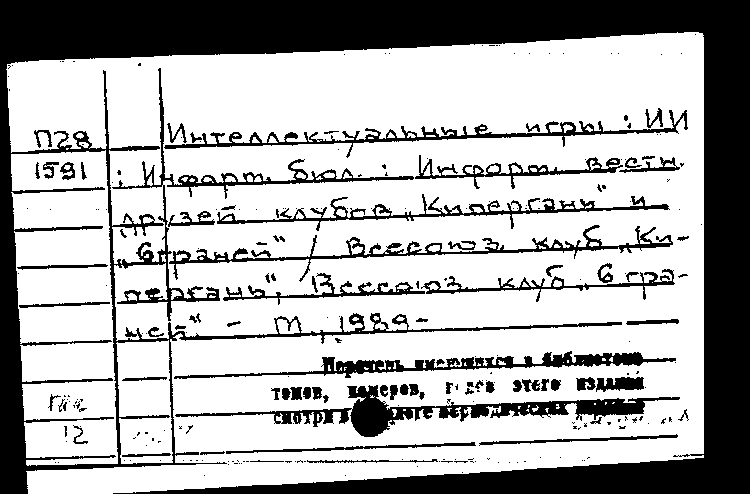 П28 Интеллектуальные игры : ИИ
1591 : Информ. бюл. : Информ. вестн.
друзей клубов „Кипергань“ и
„6 граней“ / Всесоюз. клуб „Ки-
пергань“, Всесоюз. клуб „6 гра-
ней“ - М., 1989-
Перечень имеющихся в библиотеке
томов, номеров, годов этого издания
смотри в каталоге периодических изданий
12